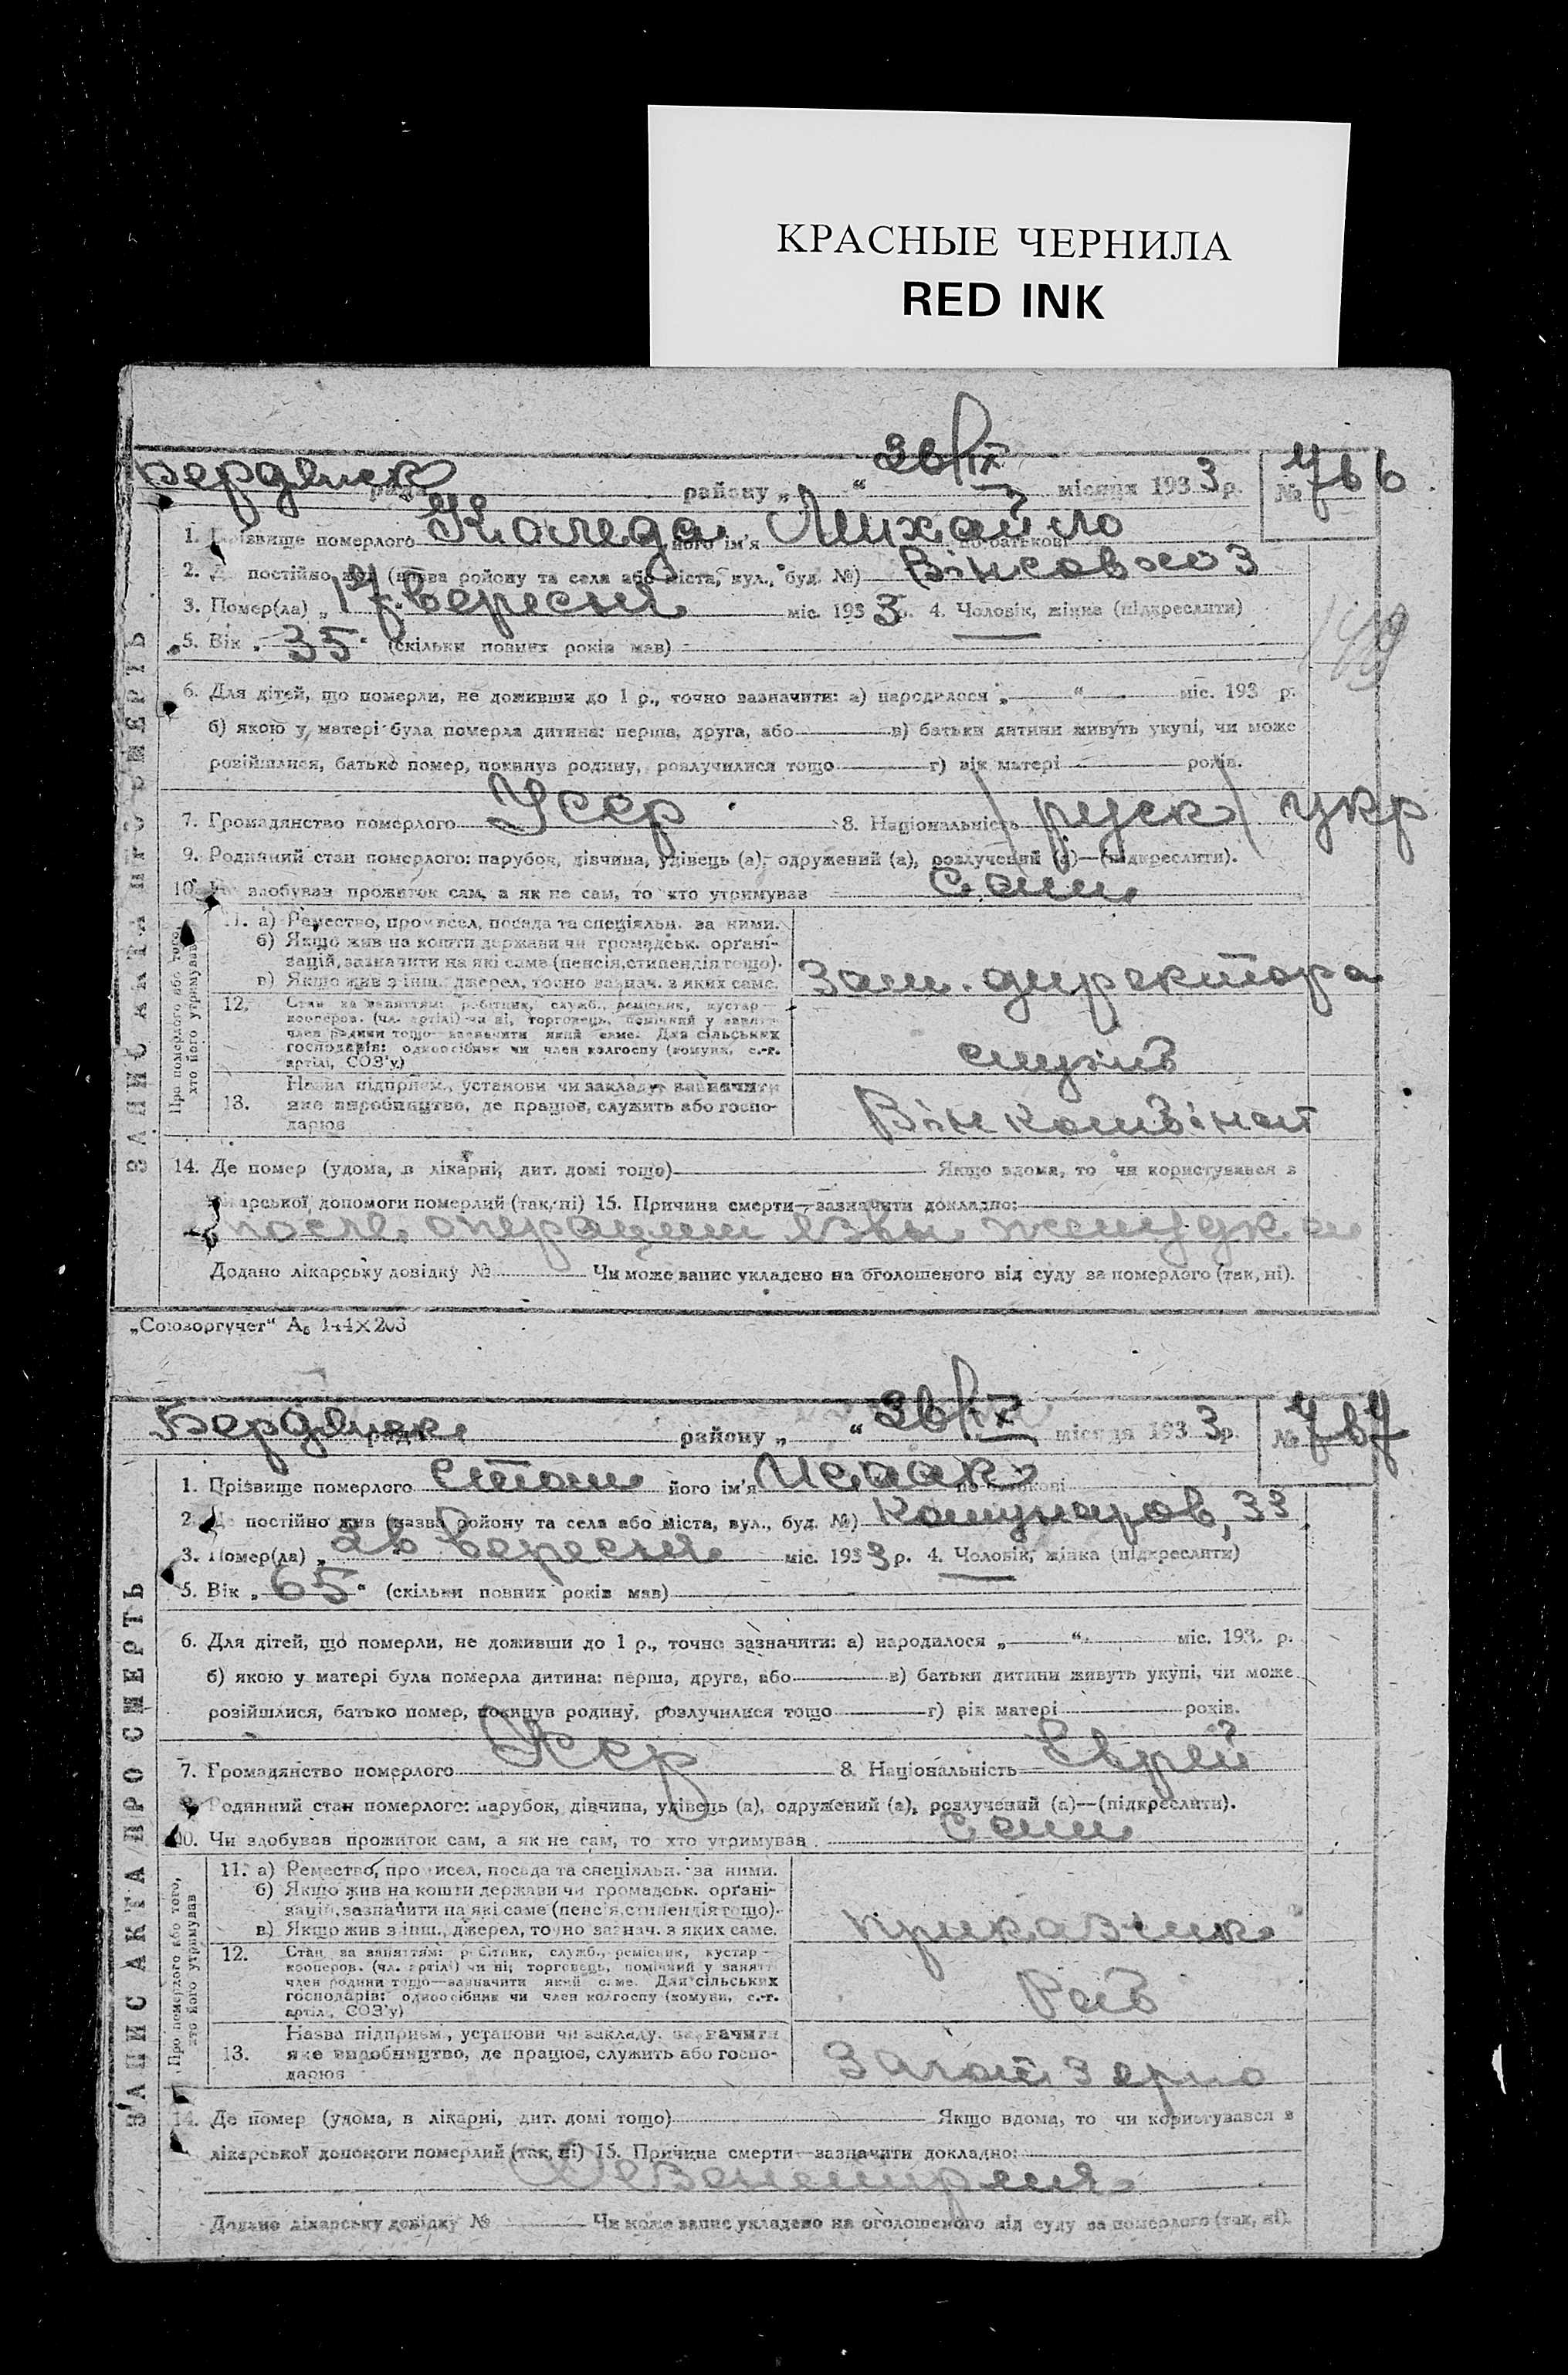 КРАСНЫЕ ЧЕРНИЛА
RED INK
Бердянск рада району „ “ 26/IX місяця 1933 р. № 766
1. Прізвище померлого Коледа його ім'я Михайло по батькові
2. Де постійно жив (назва району та села або міста, вул., буд. №)
3. Помер(ла) „17“ вересня міс. 1933 р. 4. Чоловік, жінка (підкреслити)
5. Вік „35“ (скільки повних років мав)
6. Для дітей, що померли, не доживши до 1 р., точно зазначити: а) народилося „ “ міс. 193 р.
б) якою у матері була померла дитина: перша, друга, або в) батьки дитини живуть укупі, чи може
розійшлися, батько помер, покинув родину, розлучилися тощо г) вік матері років.
7. Громадянство померлого УССР 8. Національність (руск) укр
9. Родинний стан померлого: парубок, дівчина, удівець (а), одружений (а), розлучений (а)—(підкреслити).
10. Чи здобував прожиток сам, а як не сам, то хто утримував сам
ЗАПИС АКТА ПРО СМЕРТЬ
Про померлого або того, хто його утримував
11. а) Ремество, промисел, посада та спеціяльн. за ними.
б) Якщо жив на кошти держави чи громадськ. органі-
зацій, зазначити на які саме (пенсія, стипендія тощо).
в) Якщо жив з інш. джерел, точно зазнач. з яких саме.
Зам. директора
12. Стан за заняттям: робітник, служб., ремісник, кустар—
кооперов. (чл. артілі) чи ні, торговець, помічний у занятт.
член родини тощо—зазначити який саме. Для сільських
господарів: одноосібник чи член колгоспу (комуни, с.-г.
артілі, СОЗ'у)
служб
13. Назва підприєм., установи чи закладу, зазначити
яке виробництво, де працює, служить або госпо-
дарює
Вінкомбінат
14. Де помер (удома, в лікарні, дит. домі тощо) Якщо вдома, то чи користувався з
лікарської допомоги померлий (так, ні) 15. Причина смерти—зазначити докладно:
после операции язвы желудка
Додано лікарську довідку № Чи може запис укладено на оголошеного від суду за померлого (так, ні).
„Союзоргучет“ А₅ 144×203
Бердянск рада району „ “ 26/IX місяця 1933 р. № 767
1. Прізвище померлого Стам його ім'я Исаак по батькові
2. Де постійно жив (назва району та села або міста, вул., буд. №) Комунаров, 33
3. Помер(ла) „26 вересня міс. 1933 р. 4. Чоловік, жінка (підкреслити)
5. Вік „65“ (скільки повних років мав)
6. Для дітей, що померли, не доживши до 1 р., точно зазначити: а) народилося „ “ міс. 193 р.
б) якою у матері була померла дитина: перша, друга, або в) батьки дитини живуть укупі, чи може
розійшлися, батько помер, покинув родину, розлучилися тощо г) вік матері років.
7. Громадянство померлого УССР 8. Національність Єврей
9. Родинний стан померлого: парубок, дівчина, удівець (а), одружений (а), розлучений (а)—(підкреслити).
10. Чи здобував прожиток сам, а як не сам, то хто утримував сам
ЗАПИС АКТА ПРО СМЕРТЬ
Про померлого або того, хто його утримував
11. а) Ремество, промисел, посада та спеціяльн. за ними.
б) Якщо жив на кошти держави чи громадськ. органі-
зацій, зазначити на які саме (пенсія, стипендія тощо).
в) Якщо жив з інш. джерел, точно зазнач. з яких саме.
приказчик
12. Стан за заняттям: робітник, служб., ремісник, кустар—
кооперов. (чл. артілі) чи ні, торговець, помічний у занятт.
член родини тощо—зазначити який саме. Для сільських
господарів: одноосібник чи член колгоспу (комуни, с.-г.
артілі, СОЗ'у)
Раб
13. Назва підприєм., установи чи закладу, зазначити
яке виробництво, де працює, служить або госпо-
дарює
Заготзерно
14. Де помер (удома, в лікарні, дит. домі тощо) Якщо вдома, то чи користувався з
лікарської допомоги померлий (так, ні) 15. Причина смерти—зазначити докладно:
Дезенетрия
Додано лікарську довідку № Чи може запис укладено на оголошеного від суду за померлого (так, ні).